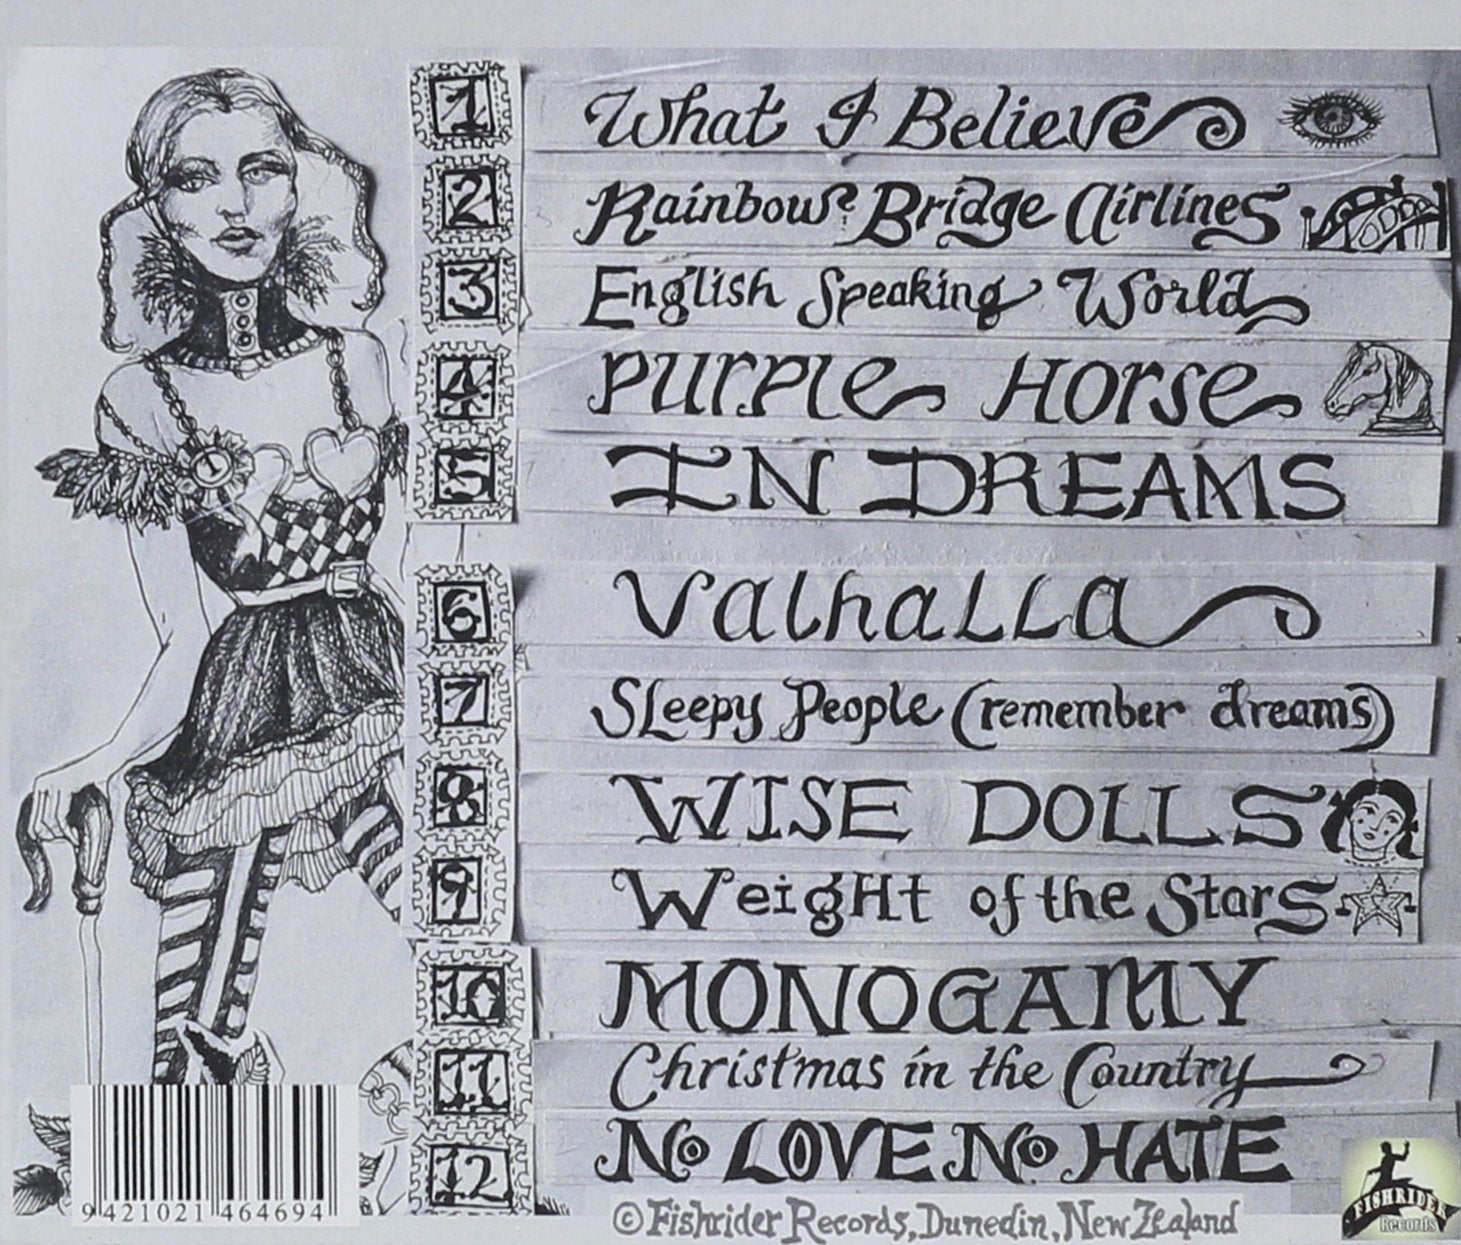 1 What I Believe
2 Rainbow Bridge Airlines
3 English Speaking World
4 Purple Horse
5 IN DREAMS
6 Valhalla
7 Sleepy People (remember dreams)
8 WISE DOLLS
9 Weight of the Stars
10 MONOGAMY
11 Christmas in the Country
12 No LOVE No HATE
1
9 421021 464694
© Fishrider Records, Dunedin, New Zealand
FISHRIDER
Records